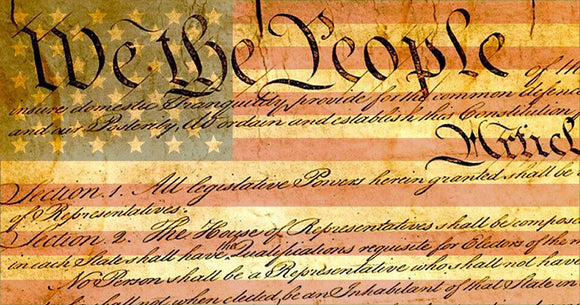 We the People
of th
insure domestic Tranquility, provide for the common defenc
and our Posterity, do ordain and establish this Constitution
Articl
Section. 1. All legislative Powers herein granted shall be
of Representatives.
Section. 2. The House of Representatives shall be compose
in each State shall have the Qualifications requisite for Electors of the m
No Person shall be a Representative who shall not have
shall not, when elected, be an Inhabitant of that State in